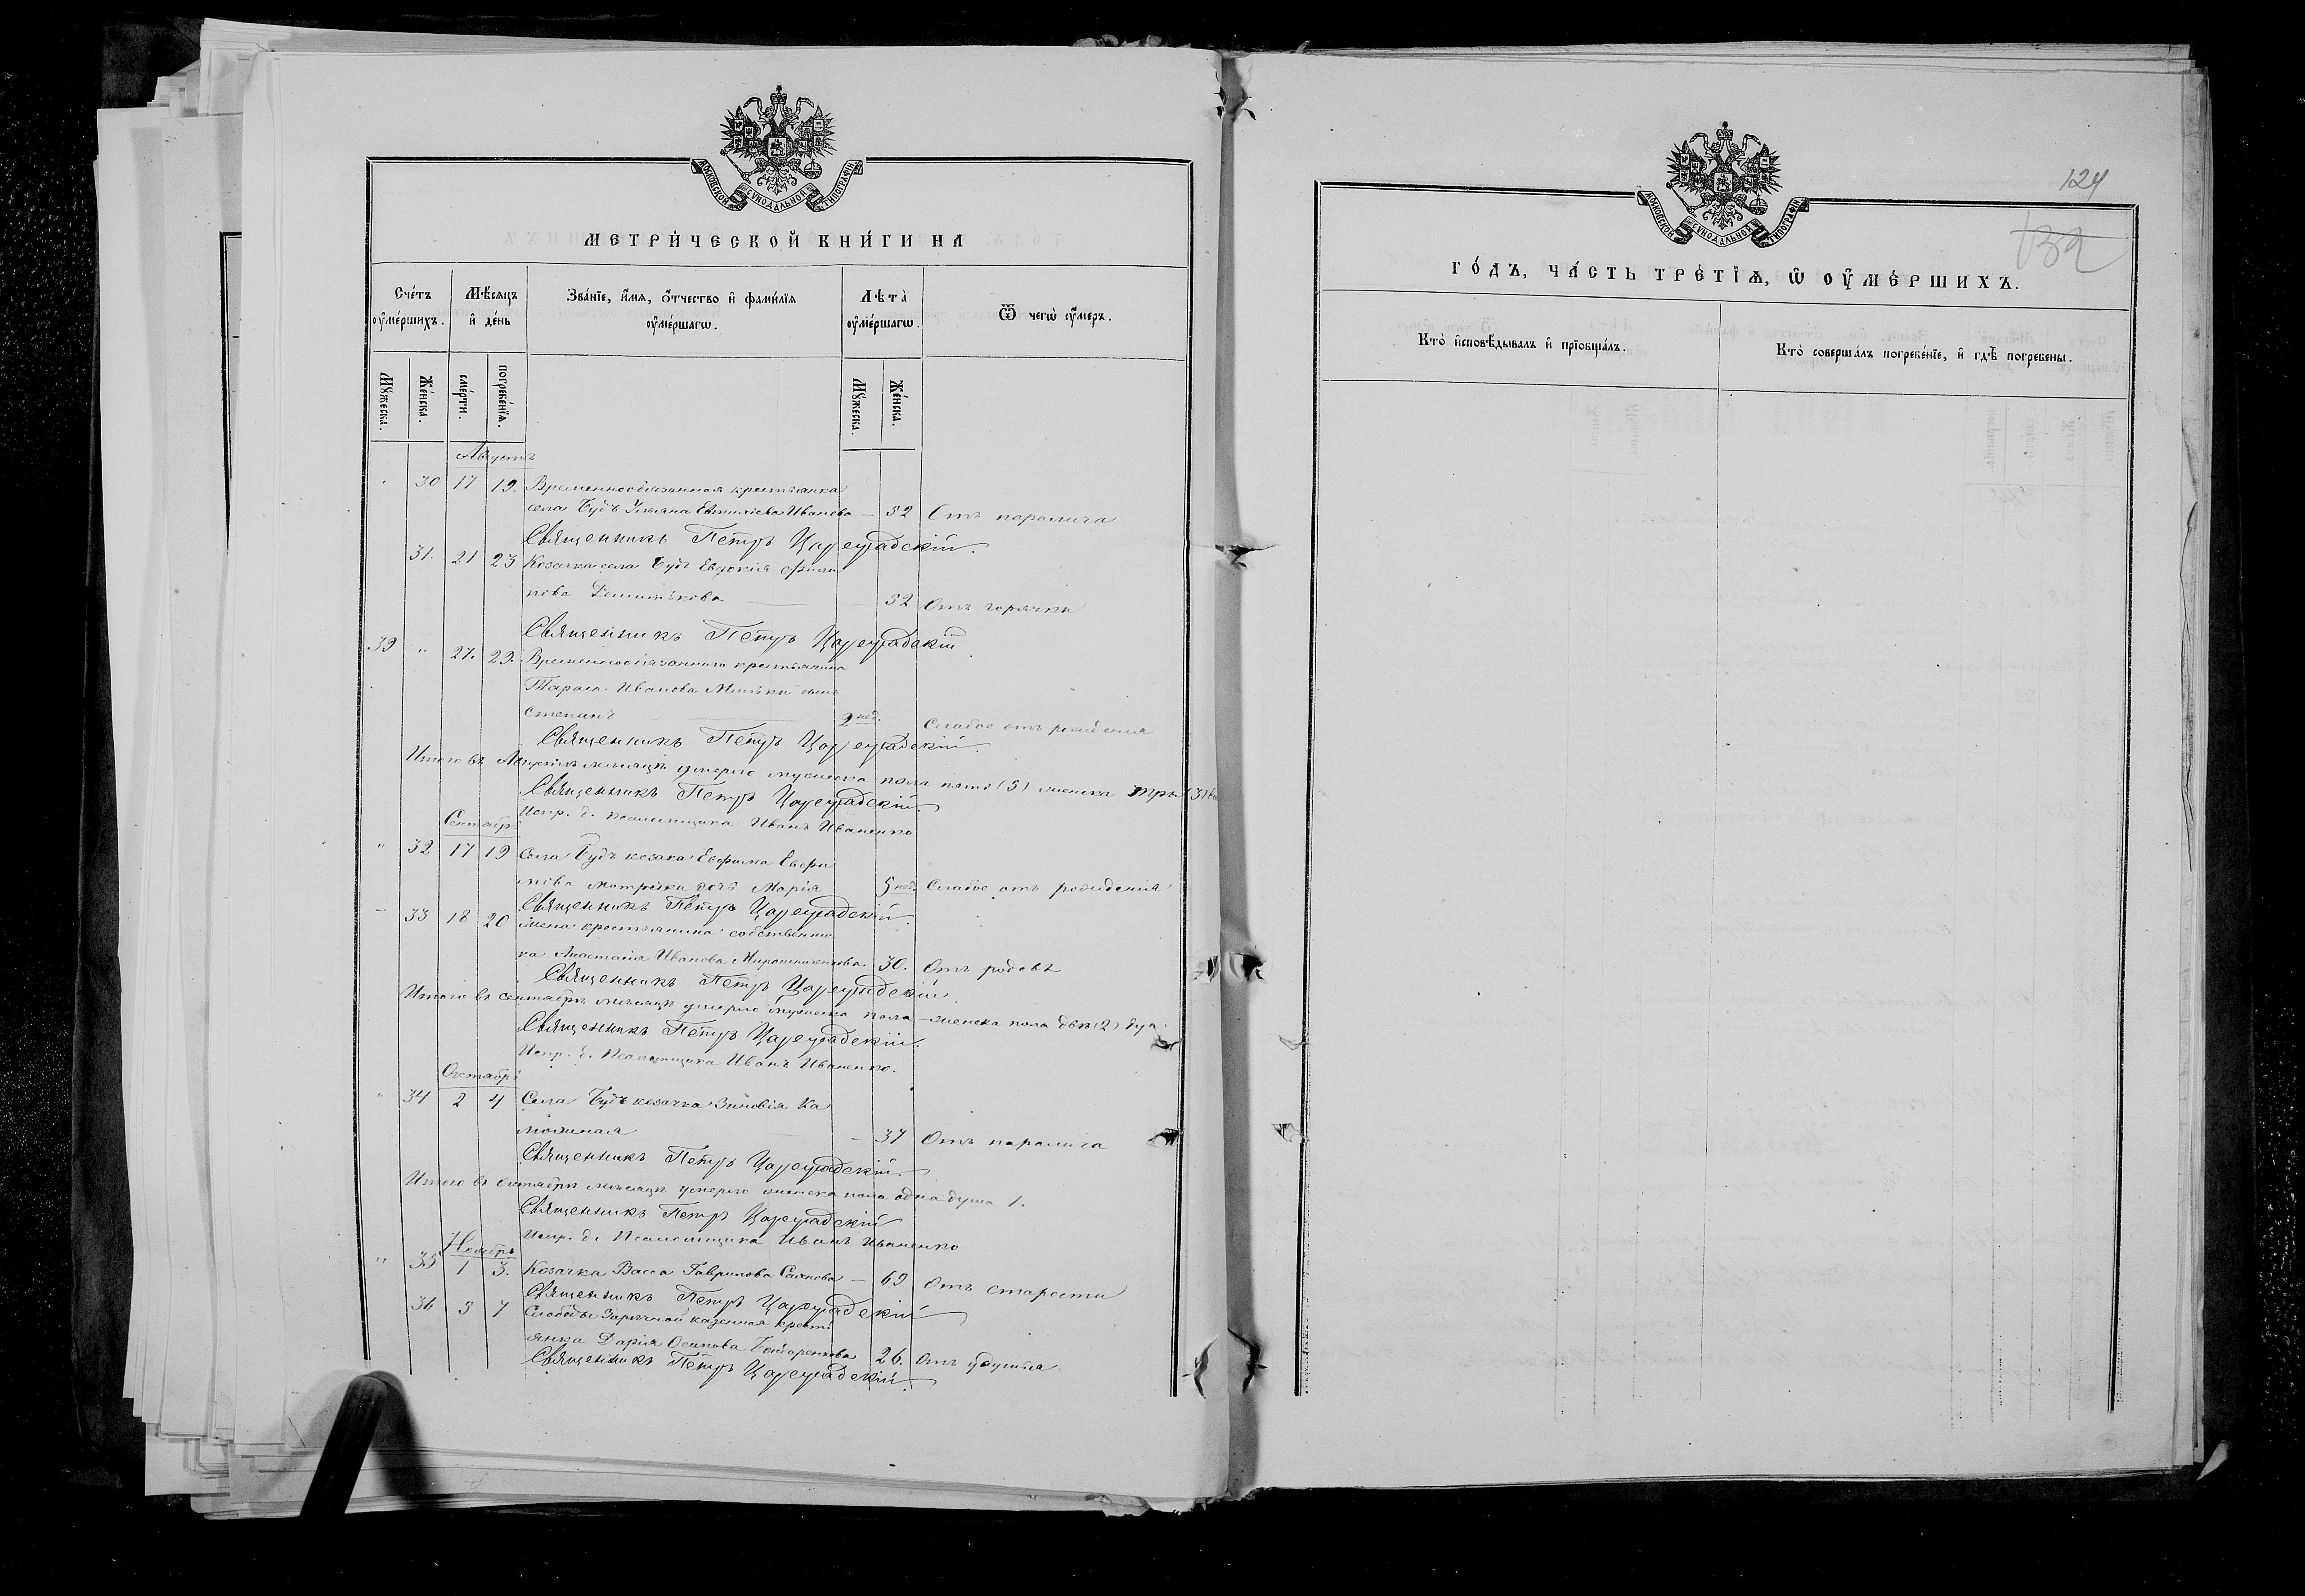 МОСКОВСКОЙ СѴНОДАЛЬНОЙ ТИПОГРАФІИ
МЕТРИ́ЧЕСКОЙ КНИ́ГИ НА
Сче́тъ оу҆ме́ршихъ.
Мѣ́сяцъ и҆ де́нь
Зва́нїе, и҆́мѧ, ѻ҆́тчество и҆ фами́лїѧ оу҆ме́ршагѡ.
Лѣта̀ оу҆ме́ршагѡ.
Ѿ чегѡ̀ оу҆́меръ.
Мꙋ́жеска.
Же́нска.
сме́рти.
погребе́нїѧ.
Мꙋ́жеска.
Же́нска.
Августъ
30 17 19. Временнообязанная крестьянка
села Будъ Ульяна Иванова — 52 Отъ паралича
Священникъ Петръ Цареградскій.
31. 21 23 Козачка села Будъ Евдокія Фили
пова 52 Отъ горячки
Священникъ Петръ Цареградскій
39 " 27. 29. Временнообязанного крестьянина
Тараса Иванова сынъ
Степанъ 2 нед. Слабое отъ рожденія
Священникъ Петръ Цареградскій.
Итого въ Августѣ мѣсяцѣ умерло мужеска пола пять (5) женска три (3)
Священникъ Петръ Цареградскій.
Испр. д. Псаломщика Иванъ Иваненко
Сентябрь
" 32 17 19 Села Будъ козака Евфима Евфи
мова дочь Марія 5 нед. Слабое отъ рожденія
Священникъ Петръ Цареградскій.
33 18 20 Жена крестьянина собственни
ка Анастасія Иванова Мирошниченкова 30. Отъ родовъ
Священникъ Петръ Цареградскій.
Итого въ сентябрѣ мѣсяцѣ умерло мужеска пола – женска пола двѣ (2) душ.
Священникъ Петръ Цареградскій.
Испр. д. Псаломщика Иванъ Иваненко.
Октябрь
" 34 2 4 Села Будъ козачка Зиновія Ка
— 37 Отъ паралича
Священникъ Петръ Цареградскій.
Итого въ Октябрѣ мѣсяцѣ умерло женска пола одна душа 1.
Священникъ Петръ Цареградскій
Испр. д. Псаломщика Иванъ Иваненко
Ноябрь
" 35 1 3. Козачка Васса Гаврилова — 69 Отъ старости
Священникъ Петръ Цареградскій
36 5 7 Слободы Заричной казенная крестъ
янка Дарія Осипова Бондаренкова 26. Отъ удушья.
Священникъ Петръ Цареградскій.
МОСКОВСКОЙ СѴНОДАЛЬНОЙ ТИПОГРАФІИ
124
132
ГО́ДЪ, ЧА́СТЬ ТРЕ́ТЇѦ, Ѡ҆ ОУ҆МЕ́РШИХЪ.
Кто̀ и҆сповѣ́дывалъ и҆ прїобща́лъ.
Кто̀ соверша́лъ погребе́нїе, и҆ гдѣ̀ погребены.